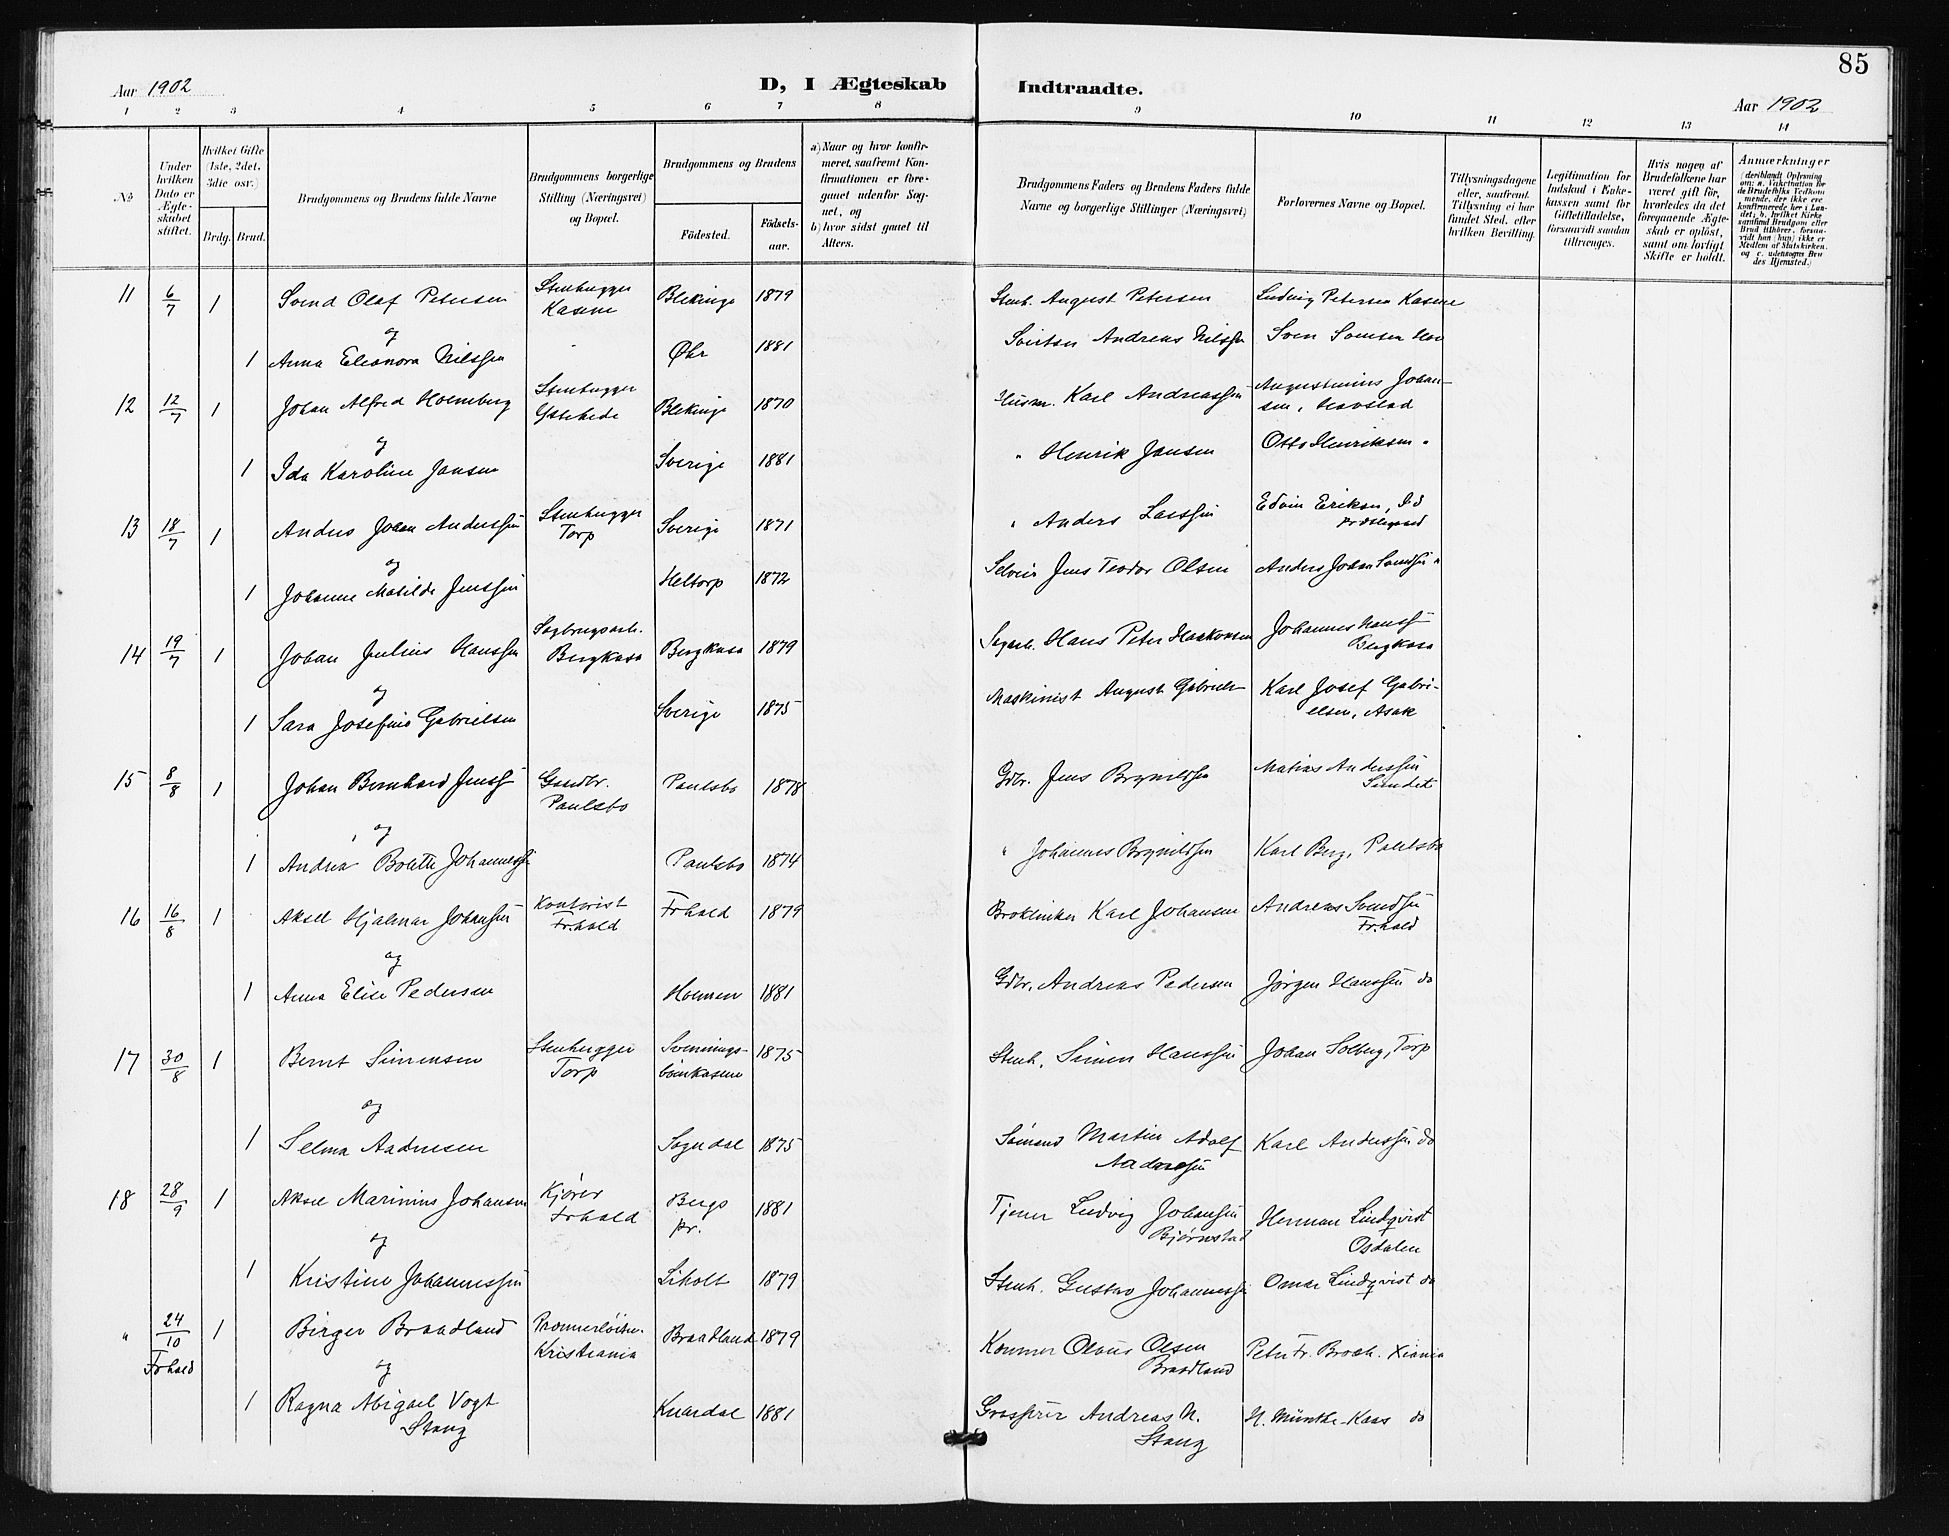 85
Aar 1902
D, I Ægteskab Indtraadte.
Aar 1902
1 2 3 4 5 6 7 8 9 10 11 12 13 14
№
Under hvilken Dato er Ægteskabet stiftet.
Hvilket Gifte (1ste, 2det, 3die osv.)
Brdg. Brud.
Brudgommens og Brudens fulde Navne
Brudgommens borgerlige Stilling (Næringsvei) og Bopæl.
Brudgommens og Brudens
Fødested. Fødselsaar.
a) Naar og hvor konfirmeret, saafremt Konfirmationen er foregaaet udenfor Sognet, og
b) hvor sidst gaaet til Alters.
Brudgommens Faders og Brudens Faders fulde Navne og borgerlige Stillinger (Næringsvei)
Forlovernes Navne og Bopæl.
Tillysningsdagene eller, saafremt Tillysning ei har fundet Sted, efter hvilken Bevilling.
Legitimation for Indskud i Enkekassen samt for Giftetilladelse, forsaavidt saadan tiltrænges.
Hvis nogen af Brudefolkene har været gift før, hvorledes da det foregaaende Ægteskab er opløst, samt om lovligt Skifte er holdt.
Anmærkninger
11 6/7 1 Svend Olaf Petersen Stenhugger Kasene Blekinge 1879 Stenh. August Petersen Ludvig Petersen Kasene
og
1 Anna Eleonora Nilssen Øbr 1881 Andreas Nilssen Sven
12 12/7 1 Johan Alfred Holmberg Stenhugger Blekinge 1870 Husm. Karl Andreassen Augustinius Johansen,
og
1 Ida Karoline Jansen Sverige 1881 " Henrik Jansen Otto Henriksen "
13 18/7 1 Anders Johan Anderssen Stenhugger Torp Sverige 1871 " Anders Larssen Edvin Eriksen, Id Prestegaard
og
1 Johanne Matilde Jenssen Heltorp 1872 Selveier Jens Teodor Olsen Anders Johan Svendsen "
14 19/7 1 Johan Julius Hanssen Sagbrugsarb. Bergkasa Bergkasa 1879 Sagarb. Hans Peter Haakonsen Johannes Hanss Bergkasa
og
1 Sara Josefine Gabrielsen Sverige 1875 Maskinist August Gabriels Karl Josef Gabrielsen, Asak
15 8/8 1 Johan Bernhard Jenss Gaardbr. Paulsbo Paulsbo 1878 Gdbr. Jens Brynildsen Matias Anderssen Sundet
og
1 Andrea Bolette Johannessen Paulsbo 1874 " Johannes Brynildsen Karl Berg, Paulsbo
16 16/8 1 Aksel Hjalmar Johanssen Kontorist Fr.hald Frhald 1879 Karl Johansen Andreas Svendsen Fr.hald
og
1 Anna Elise Pedersen Holmen 1881 Gdbr. Andreas Pedersen Jørgen Hanssen do
17 30/8 1 Bernt Simensen Stenhugger Torp 1875 Stenh. Simen Hanssen Johan Solberg, Torp
og
1 Selma Aadnesen Sogndal 1875 Sømand Martin Adolf Aadnesen Karl Anderssen do
18 28/9 1 Aksel Marinius Johansen Kjører Frhald Bergs pr. 1881 Tjener Ludvig Johansen Bjørnstad Herman Lindqvist Osdalen
og
1 Kristine Johannessen Liholt 1879 Stenh. Gustav Johannessen Omar Lindqvist do
" 24/10 Frhald 1 Birger Braadland Premierløitn. Kristiania Braadland 1879 Olaus Olsen Braadland Peter Fr. Broch. Xiania
og
1 Ragna Abigael Vogt Stang Knardal 1881 Grosserer Andreas N. Stang H. Münthe-Kaas do